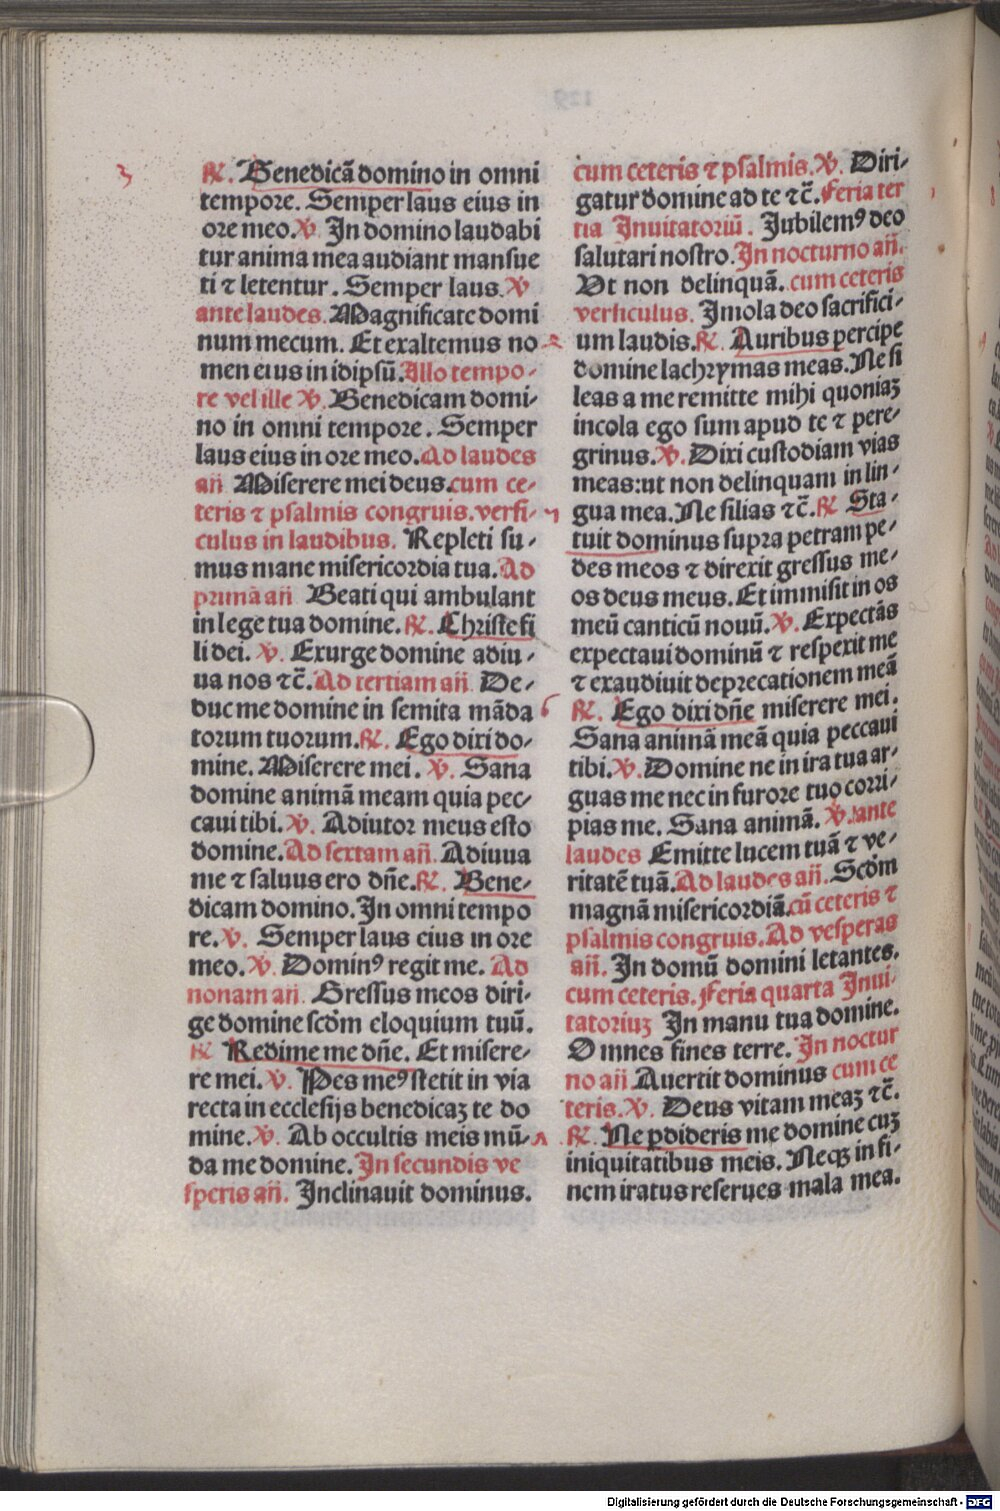 3
℟. Benedicā domino in omni
tempore. Semper laus eius in
ore meo. ℣. In domino laudabi
tur anima mea audiant mansue
ti ⁊ letentur. Semper laus. ℣
ante laudes. Magnificate domi
num mecum. Et exaltemus no
men eius in idipsū. Illo tempo-
re vel ille ℣. Benedicam domi-
no in omni tempore. Semper
laus eius in ore meo. Ad laudes
añ Miserere mei deus. cum ce-
teris ⁊ psalmis congruis. versi-
culus in laudibus. Repleti su-
mus mane misericordia tua. Ad
primā añ Beati qui ambulant
in lege tua domine. ℟. Christe fi
li dei. ℣. Exurge domine adiu-
ua nos ⁊c̄. Ad tertiam añ. De-
duc me domine in semita māda
torum tuorum. ℟. Ego dixi do-
mine. Miserere mei. ℣. Sana
domine animā meam quia pec-
caui tibi. ℣. Adiutor meus esto
domine. Ad sextam añ. Adiuua
me ⁊ saluus ero dñe. ℟. Bene-
dicam domino. In omni tempo
re. ℣. Semper laus eius in ore
meo. ℣. Dominꝰ regit me. Ad
nonam añ. Gressus meos diri-
ge domine scdm eloquium tuū.
℟ Redime me dñe. Et misere-
re mei. ℣. Pes meꝰ stetit in via
recta in ecclesijs benedicaȝ te do
mine. ℣. Ab occultis meis mū-
da me domine. In secundis ve
speris añ. Inclinauit dominus.
cum ceteris ⁊ psalmis. ℣. Diri-
gatur domine ad te ⁊c̄. Feria ter
tia Inuitatoriū. Jubilemꝰ deo
salutari nostro. In nocturno añ.
Vt non delinquā. cum ceteris
versiculus. Imola deo sacrifici-
um laudis. ℟. Auribus percipe
domine lachrymas meas. Ne si
leas a me remitte mihi quoniaȝ
incola ego sum apud te ⁊ pere-
grinus. ℣. Dixi custodiam vias
meas: ut non delinquam in lin-
gua mea. Ne silias ⁊c̄. ℟ Sta-
tuit dominus supra petram pe-
des meos ⁊ direxit gressus me-
os deus meus. Et immisit in os
meū canticū nouū. ℣. Expectās
expectaui dominū ⁊ respexit me
⁊ exaudiuit deprecationem meā
6 ℟. Ego dixi dñe miserere mei.
Sana animā meā quia peccaui
tibi. ℣. Domine ne in ira tua ar-
guas me nec in furore tuo corri-
pias me. Sana animā. ℣. ante
laudes Emitte lucem tuā ⁊ ve-
ritatē tuā. Ad laudes añ. Scdm
magnā misericordiā. cū ceteris ⁊
psalmis congruis. Ad vesperas
añ. In domū domini letantes.
cum ceteris. Feria quarta Inui-
tatoriuȝ In manu tua domine.
Omnes fines terre. In noctur
no añ Auertit dominus cum ce
teris. ℣. Deus vitam meaȝ ⁊c̄.
℟. Ne ꝑdideris me domine cuȝ
iniquitatibus meis. Neqȝ in fi-
nem iratus reserues mala mea.
Digitalisierung gefördert durch die Deutsche Forschungsgemeinschaft - DFG